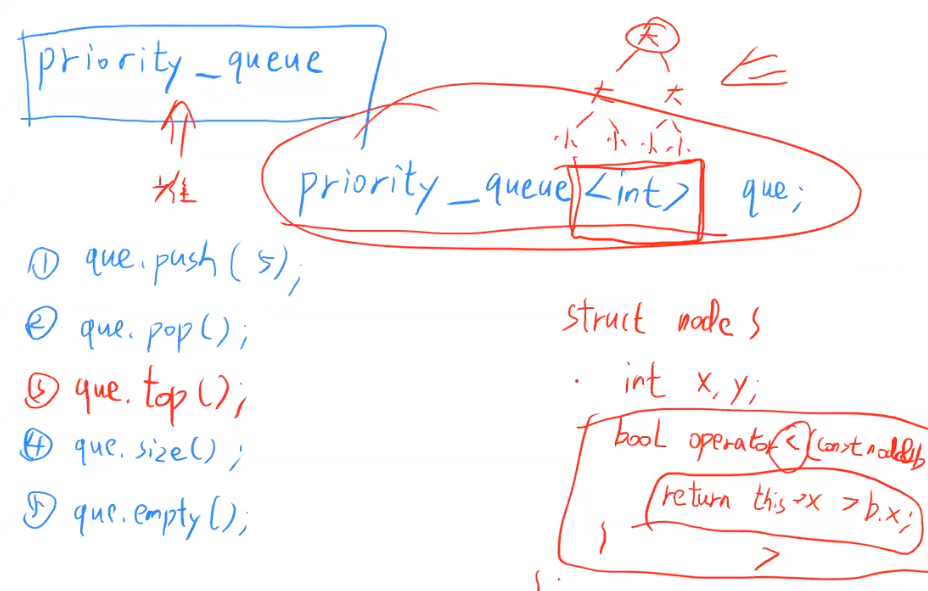 priority_queue
堆
大
大 大
小 小 小 小
priority_queue <int> que;
① que.push(5);
② que.pop();
③ que.top();
④ que.size();
⑤ que.empty();
struct node {
int x, y;
bool operator < (const node& b
return this->x > b.x;
}
>
}